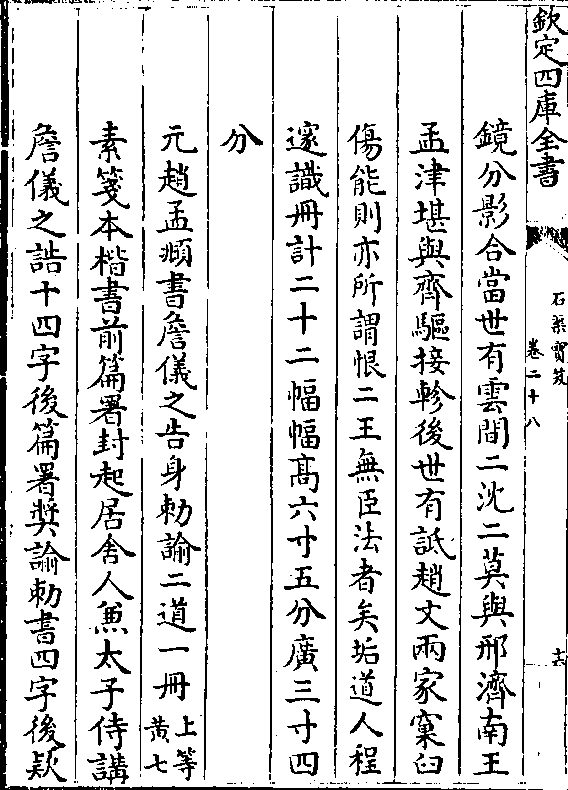 欽定四庫全書
石渠寶笈
卷二十八
六
鏡分影合當世有雲間二沈二莫與邢濟南王
孟津堪與齊驅接軫後世有詆趙文兩家窠臼
傷能則亦所謂恨二王無臣法者矣垢道人程
邃識冊計二十二幅幅高六寸五分廣三寸四
分
元趙孟頫書詹儀之告身勅諭二道一冊上等黃七
素箋本楷書前篇署封起居舍人兼太子侍講
詹儀之誥十四字後篇署奬諭勅書四字後款